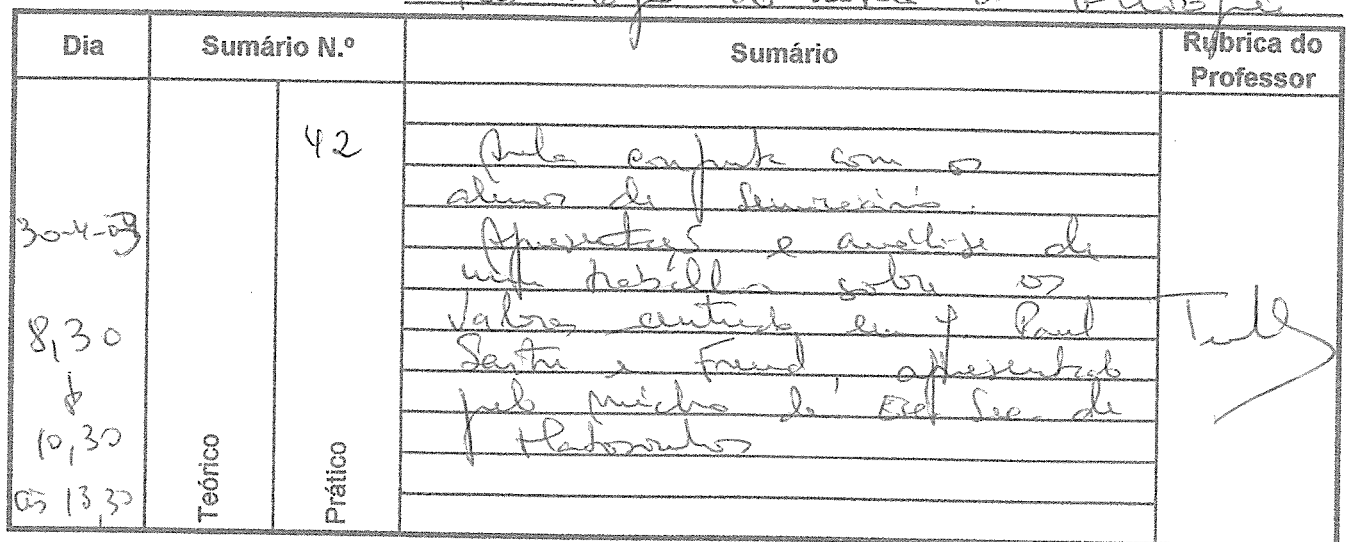 Dia
Sumário N.º
Sumário
Rubrica do
Professor
42
Teórico
Prático
30-4-03
8,30
10,30
às 13,30
Aula conjunta com o
alunos de Seminário.
Apresentação e análise de
um trabalho sobre os
Valores centrado em J Paul
Sartre e Freud, apresentado
pelo núcleo da Esc. Sec. de
Matosinhos